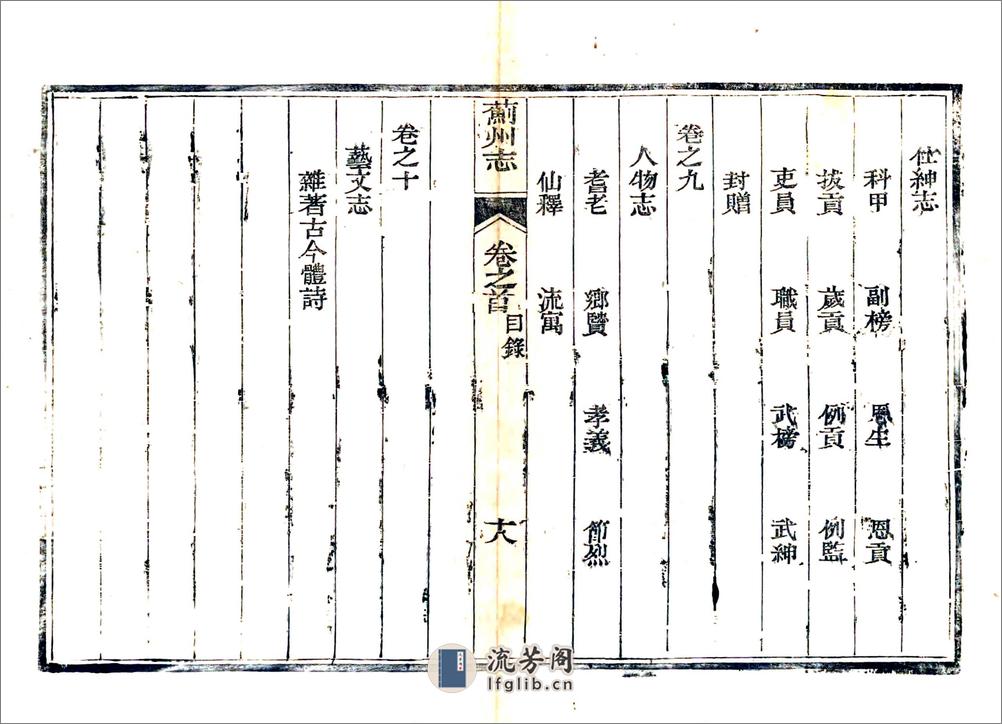 仕紳志
科甲　副榜　恩生　恩貢
拔貢　歲貢　例貢　例監
吏員　職員　武榜　武紳
封贈
卷之九
人物志
耆老　鄉賢　孝義　節烈
仙釋　流寓
薊州志　卷之首　目錄　十八
卷之十
藝文志
雜著古今體詩
流芳阁
lfglib.cn